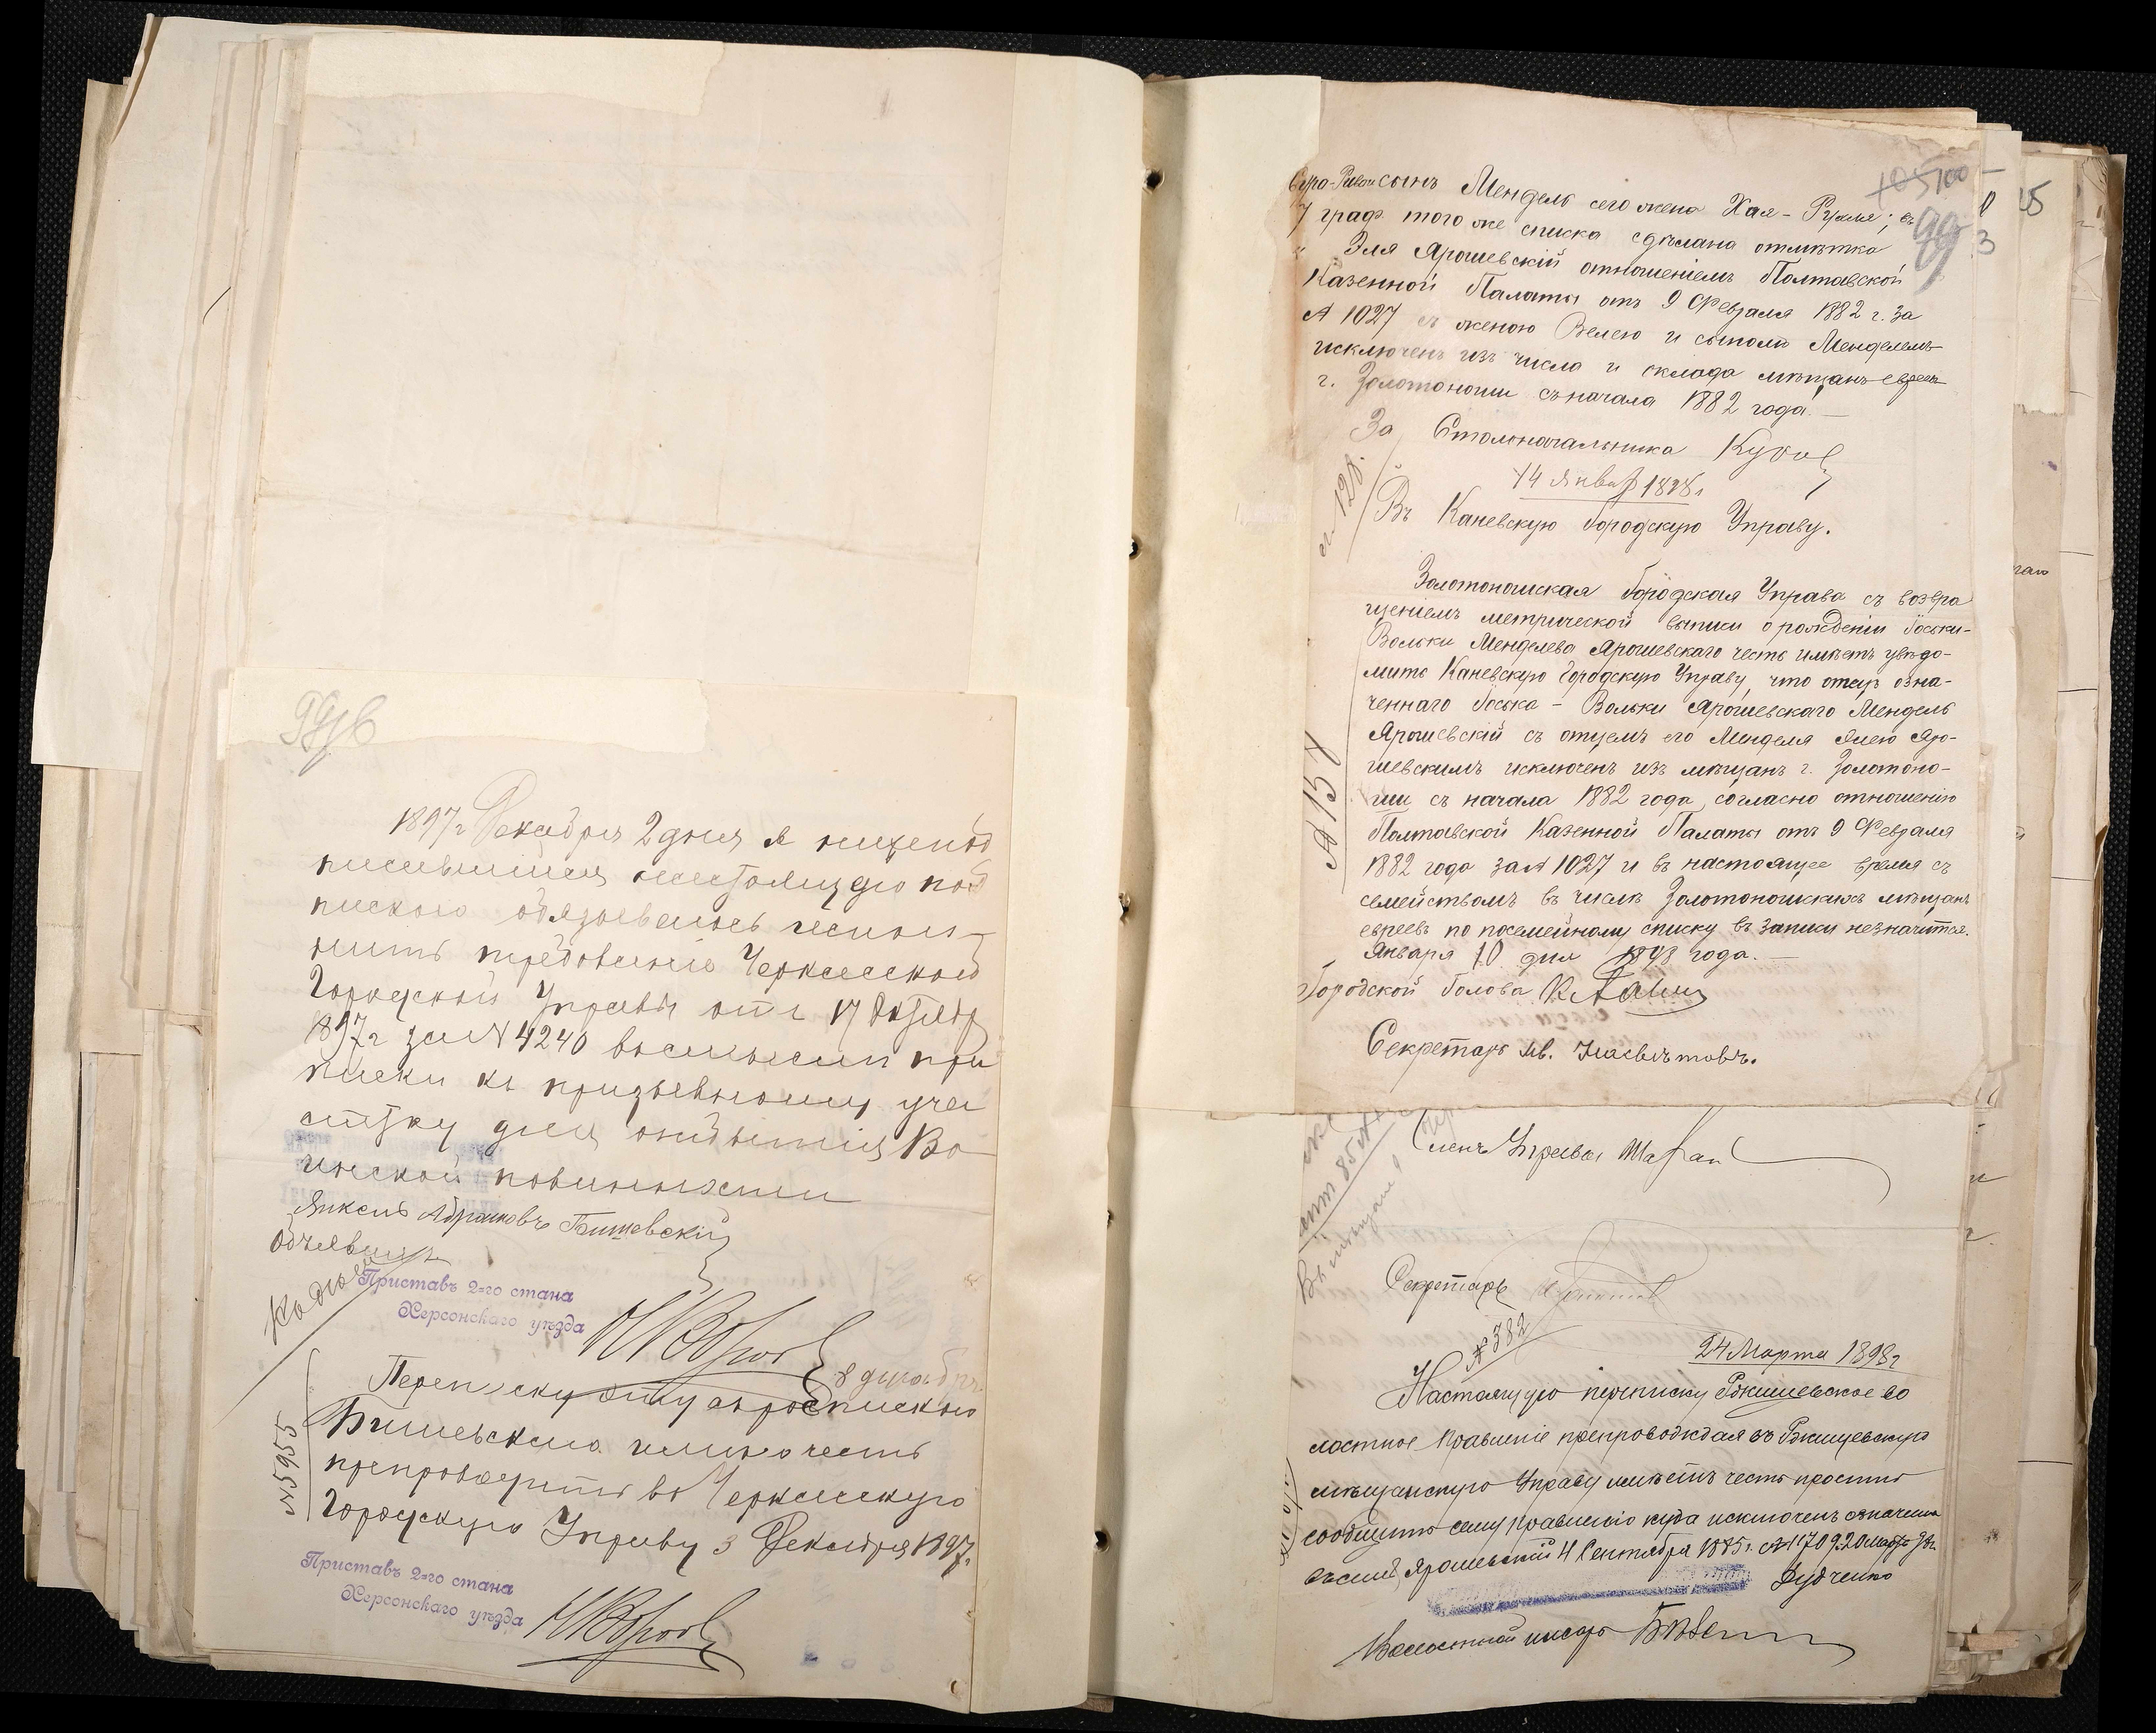 99 об
1897 г Декабря 2 дня я нижепод
писавшийся настоящею под
пискою обязываюсь испол-
нить требование Черкасской
Городской Управы отъ 17 Октября
1897 г за № 4240 высылкой при
писки къ призывному уча
стку для отбытія Во
инской повинности
Янкель Абрамовъ Бышевскій
Объявилъ
Приставъ 2-го стана
Херсонскаго уѣзда
8 декабря
№ 5955
Переписку эту съ роспискою
Бышевскаго имѣю честь
препроводить въ Черкасскую
Городскую Управу 3 Декабря 1897 г.
Приставъ 2-го стана
Херсонскаго уѣзда
105 100
99
сынъ Мендель его жена Хая-Рухля; въ
7 граф. того же списка сдѣлана отмѣтка
" Эля Ярошевскій отношеніемъ Полтавской
Казенной Палаты отъ 9 Февраля 1882 г. за
№ 1027 съ женою Велею и сыномъ Менделемъ
исключенъ изъ числа и оклада мѣщанъ евреевъ
г. Золотоноши съ начала 1882 года. —
За Столоначальника
14 Январ 1898 г
№ 128.
Въ Каневскую Городскую Управу.
Золотоношская Городская Управа съ возвра
щеніемъ метрической выписи о рожденіи Іоськи-
Вольки Менделева Ярошевскаго честь имѣетъ увѣдо-
мить Каневскую Городскую Управу, что отецъ озна-
ченнаго Іоська - Вольки Ярошевскаго Мендель
Ярошевскій съ отцемъ его Менделя Элею Яро-
шевскимъ исключенъ изъ мѣщанъ г. Золотоно-
ши съ начала 1882 года, согласно отношенію
Полтавской Казенной Палаты отъ 9 Февраля
1882 года за № 1027 и въ настоящее время съ
семействомъ въ числѣ Золотоношскихъ мѣщанъ
евреевъ по посемейному списку въ записи не значится.
Января 10 дня 1898 года. —
№ 157
Городской Голова
Секретарь Ив.
Членъ Управы
Секретарь
№ 382
24 Марта 1898 г
Настоящую переписку Ржищевское во
лостное Правленіе препровождая въ Ржищевскую
мѣщанскую Управу имѣетъ честь просить
сообщить сему правленію куда исключенъ означенн
Ярошевскій 4 Сентября 1885 г.
Дудченко
Волостной писарь